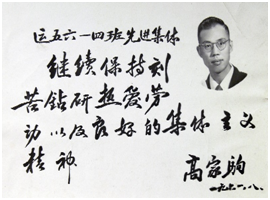 运五六一四班先进集体
继续保持刻
苦钻研热爱劳
动以及良好的集体主义
精神
高家驹
一九六一.八.